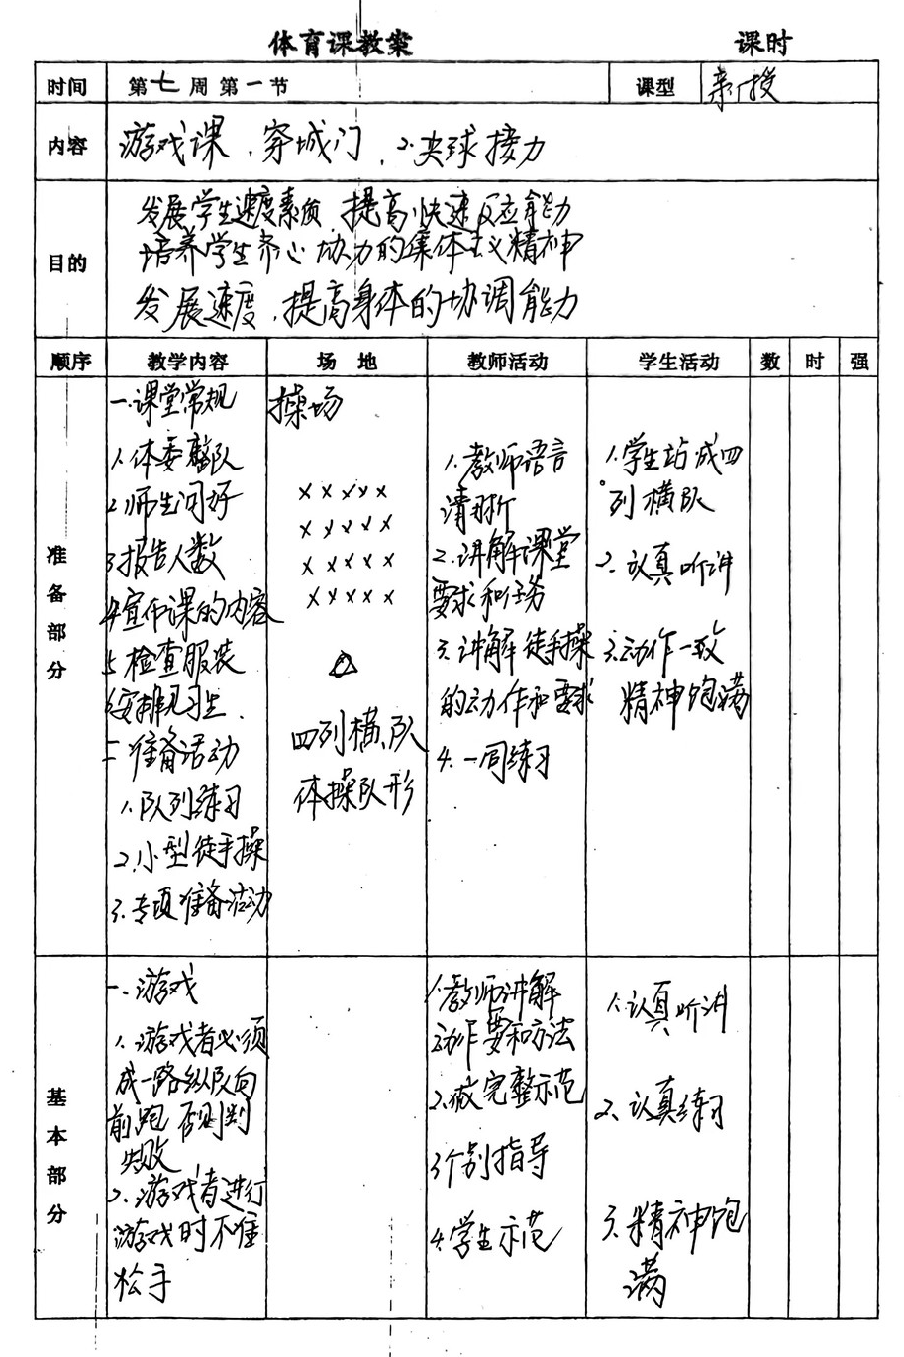 体育课教案 课时
时间 第七周第一节 课型 新授
内容 游戏课、穿城门、2.夹球接力
目的
发展学生速度素质,提高快速反应能力
培养学生齐心协力的集体主义精神
发展速度,提高身体的协调能力
顺序 教学内容 场地 教师活动 学生活动 数 时 强
准备部分
一.课堂常规
1.体委整队
2.师生问好
3报告人数
4宣布课的内容
5检查服装
6安排见习生.
二准备活动
1.队列练习
2.小型徒手操
3.专项准备活动
操场
×××××
×××××
×××××
×××××
四列横队
体操队形
1.教师语言
清晰
2.讲解课堂
要求和任务
3.讲解徒手操
的动作和要求
4.一同练习
1.学生站成四
列横队
2、认真听讲
3.动作一致
精神饱满
基本部分
一.游戏
1.游戏者必须
成一路纵队向
前跑 否则判
失败
2.游戏者进行
游戏时不准
松手
1.教师讲解
动作要和方法
2.做完整示范
3个别指导
4.学生示范
1.认真听讲
2、认真练习
3.精神饱
满